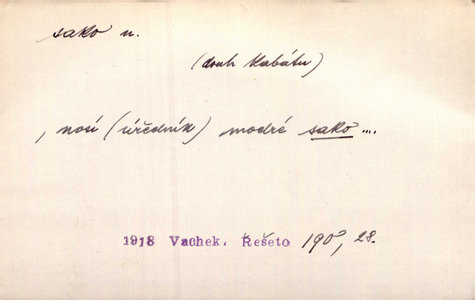 sako n.
(druh kabátu)
, nosí (úředník) modré sako ....
1918 Vachek, Řešeto 190, 28.